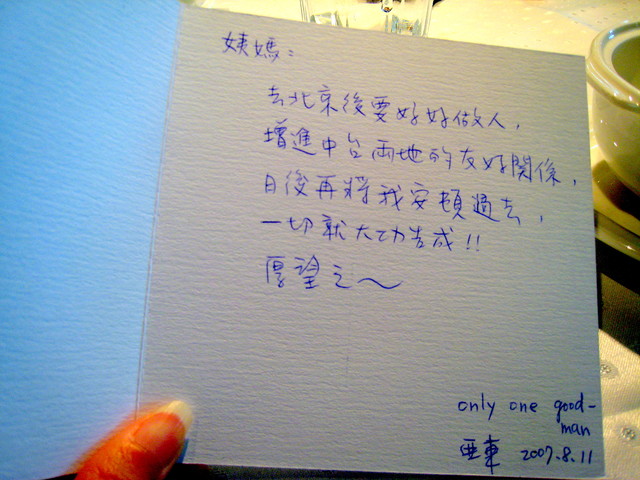 姨媽：
去北京後要好好做人，
增進中台兩地的友好關係，
日後再將我安頓過去，
一切就大功告成!!
厚望之～
only one good-
man
亜東 2007.8.11